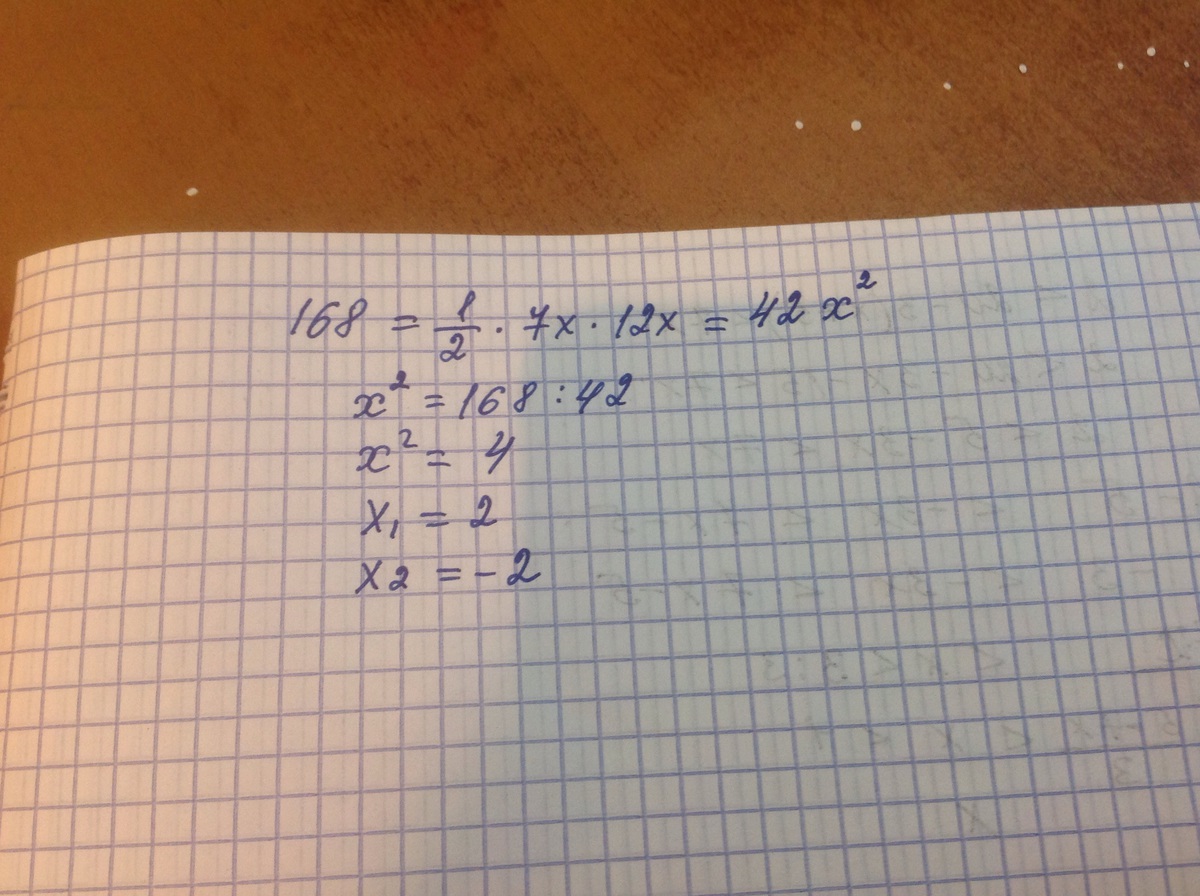 168 = 1/2 · 7x · 12x = 42 x²
x² = 168 : 42
x² = 4
x₁ = 2
x₂ = -2